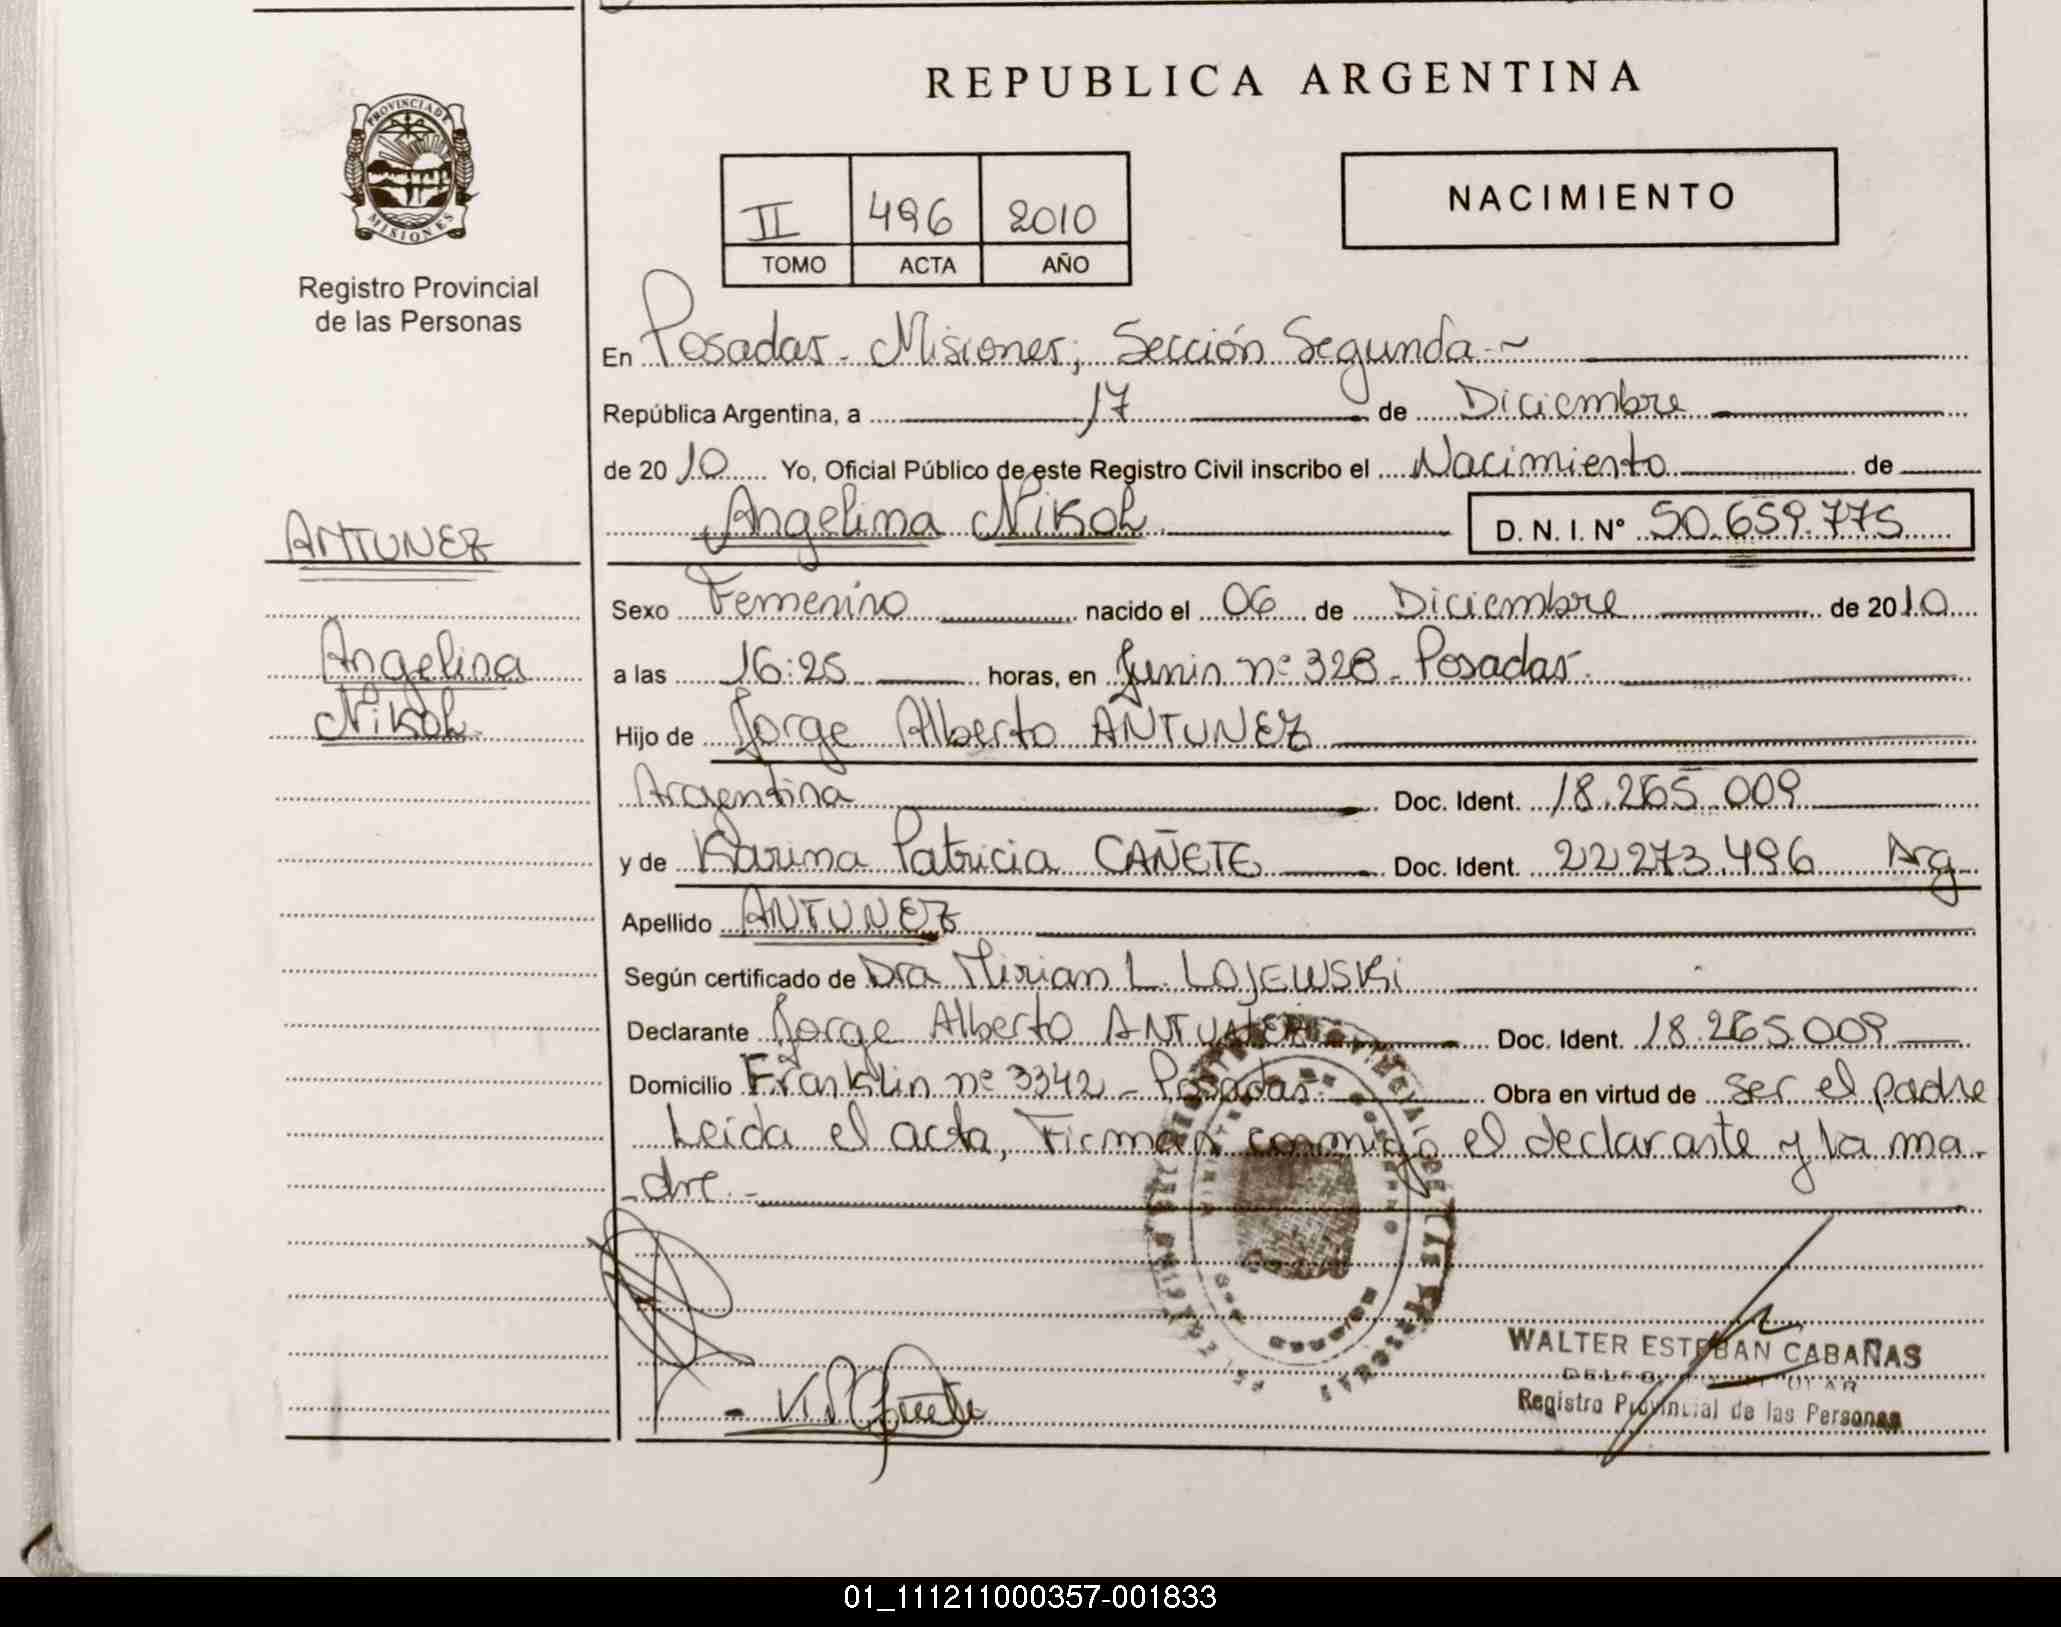 REPUBLICA ARGENTINA
PROVINCIA DE
MISIONES
Registro Provincial
de las Personas
II 496 2010
TOMO ACTA AÑO
NACIMIENTO
En Posadas - Misiones; Sección Segunda.~
República Argentina, a 17 de Diciembre
de 2010 Yo, Oficial Público de este Registro Civil inscribo el Nacimiento de
Angelina Nikol D. N. I. Nº 50.659.775
ANTUNEZ
Angelina
Nikol
Sexo Femenino nacido el 06 de Diciembre de 2010
a las 16:25 horas, en Junin nº 328 - Posadas.
Hijo de Jorge Alberto ANTUNEZ
Argentina Doc. Ident. 18.265.009
y de Karina Patricia CAÑETE Doc. Ident. 22.273.496 Arg
Apellido ANTUNEZ
Según certificado de Dra Mirian L. LOJEWSKi
Declarante Jorge Alberto ANTUNEZ Doc. Ident. 18.265.009
Domicilio Franklin nº 3342 - Posadas. Obra en virtud de ser el padre
Leida el acta, Firman conmigo el declarante y la ma-
-dre.-
WALTER ESTEBAN CABAÑAS
Registro Provincial de las Personas
01_111211000357-001833